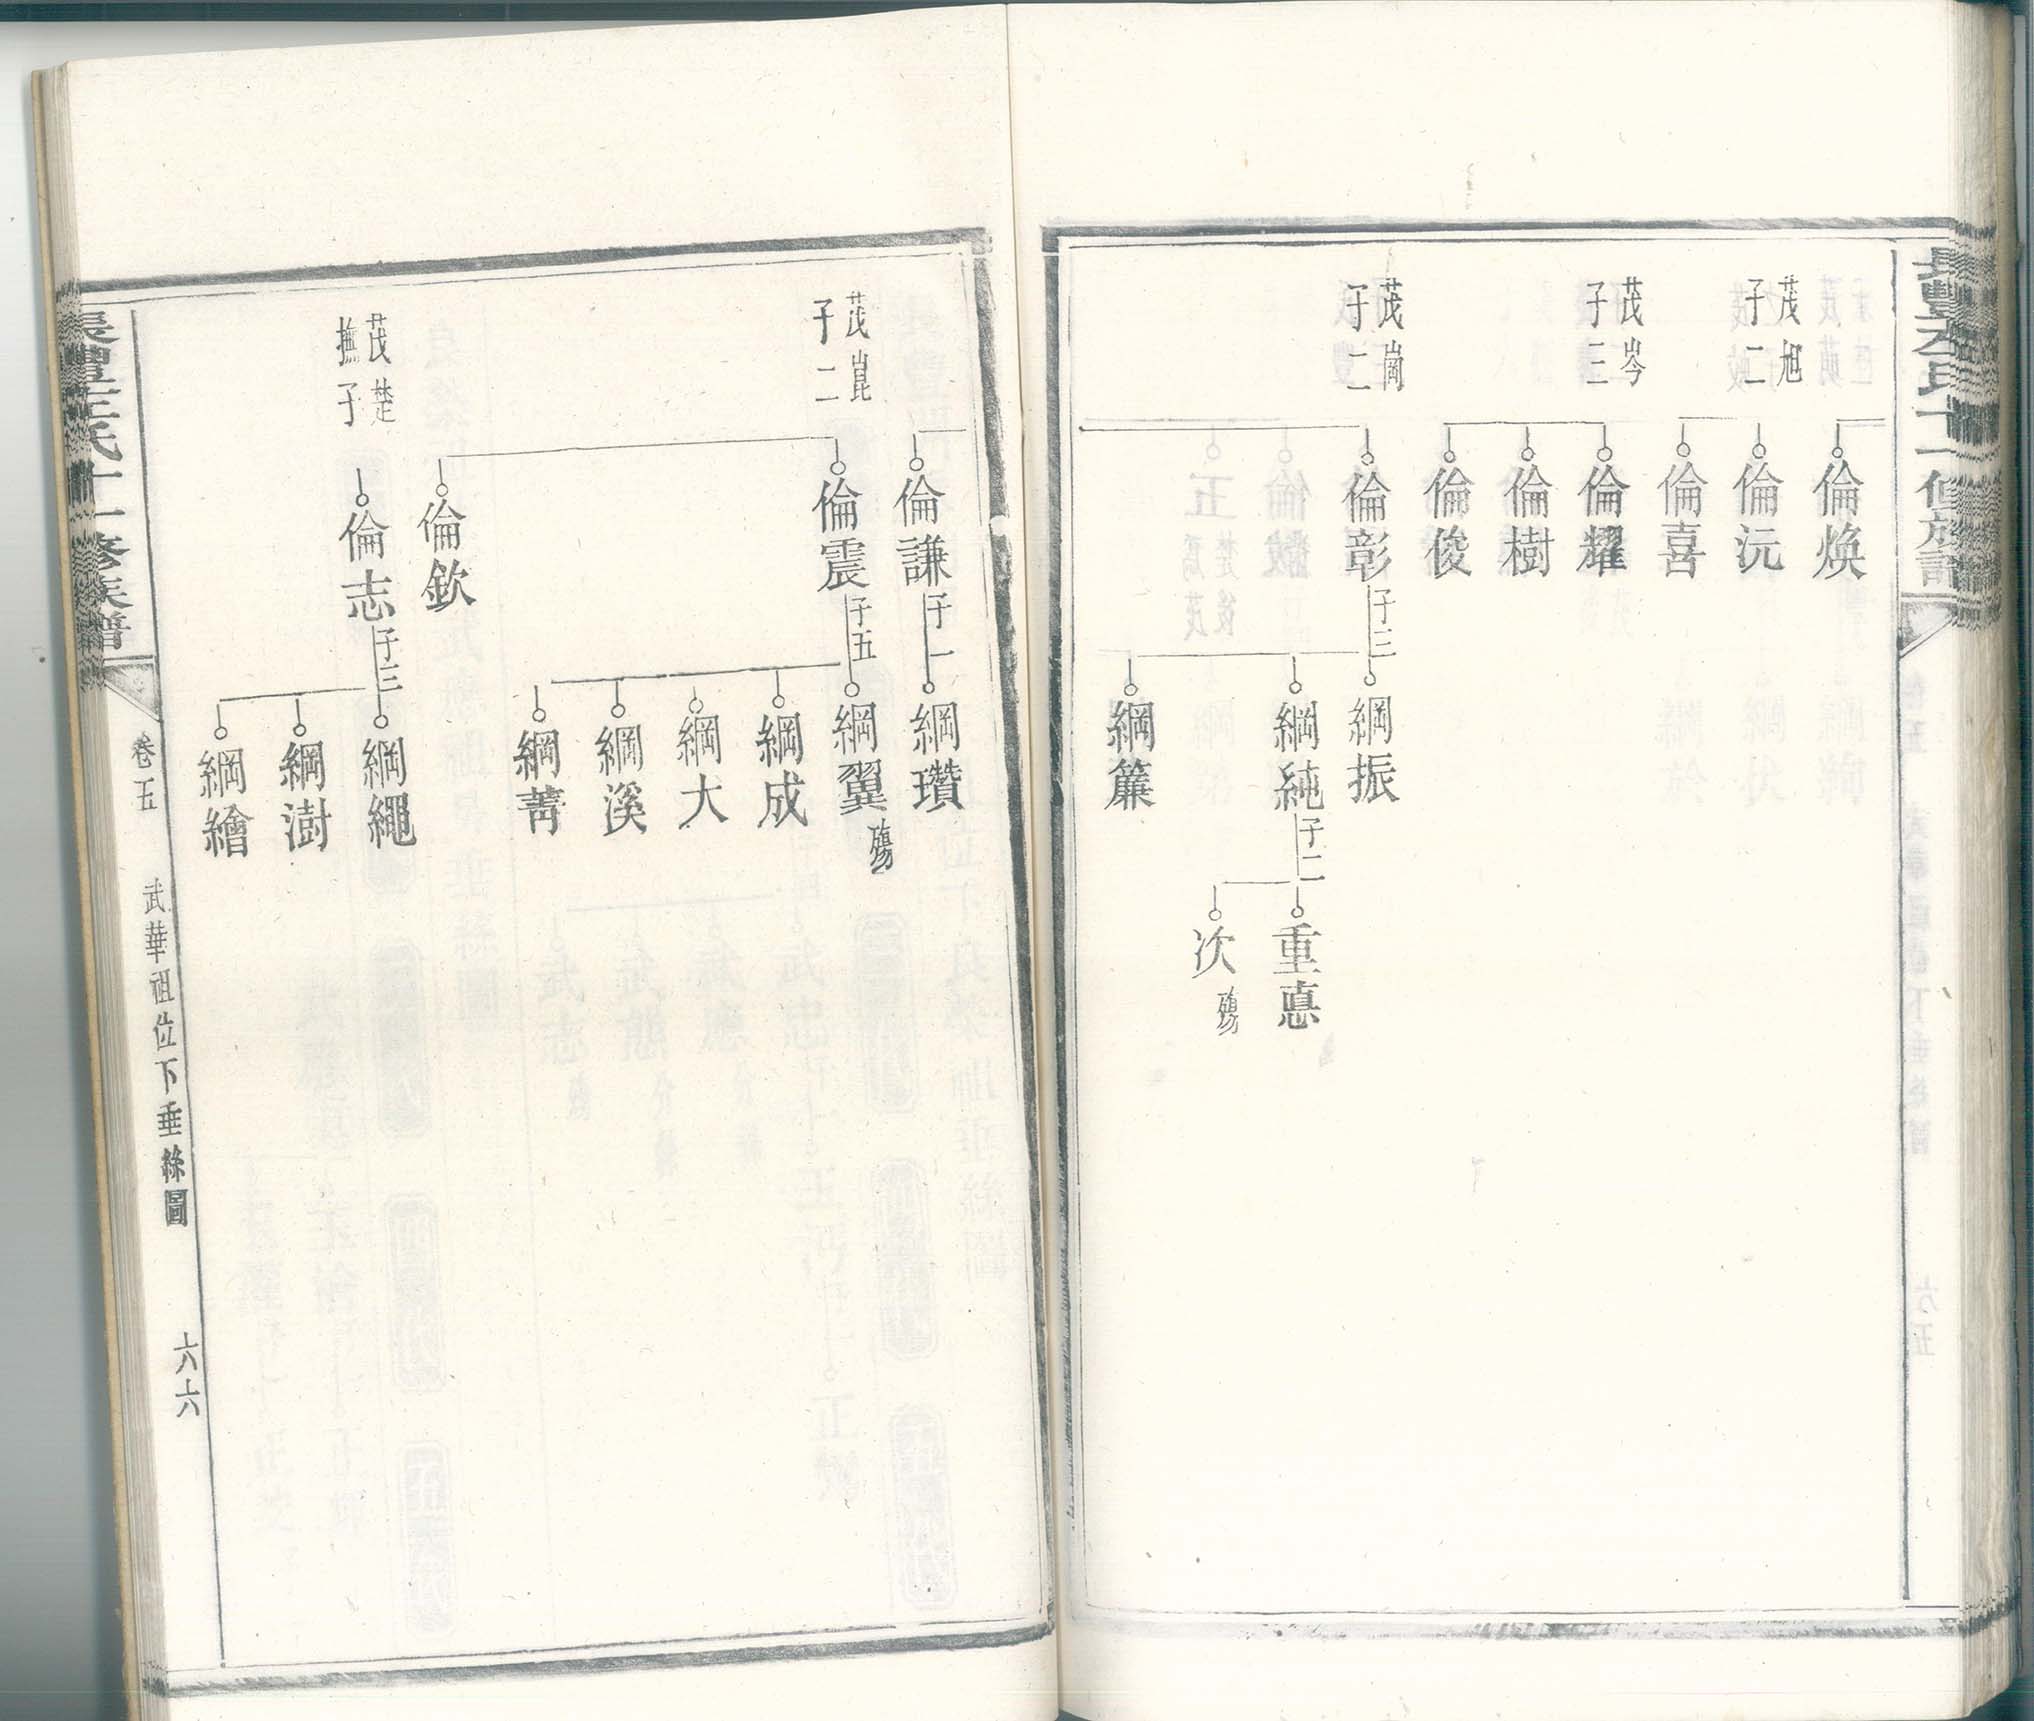 茂旭
子二
茂岑
子三
茂崗
子二
倫煥
倫沅
倫喜
倫耀
倫樹
倫俊
倫彰
子三
綱振
綱純
子二
綱簾
重惪
次
殤
茂崑
子二
茂楚
撫子
倫謙
子一
綱瓚
倫震
子五
綱翼
殤
綱成
綱大
綱溪
綱菁
倫欽
倫志
子三
綱繩
綱澍
綱繪
氏十一修族譜
卷五
武華祖位下垂絲圖
六六